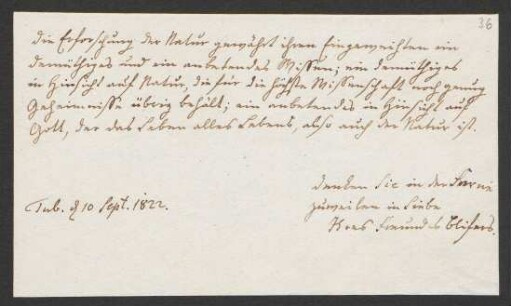 36
Die Erforschung der Natur gewährt ihren Eingeweihten ein
demüthiges und ein anbetendes Wissen; ein demüthiges
in Hinsicht auf Natur, die für die höchste Wissenschaft noch genug
Geheimnisse übrig behält; ein anbetendes in Hinsicht auf
Gott, der das Leben alles Lebens, also auch der Natur ist.
Denken Sie in der Ferne
Tub. d 10 Sept. 1822.
zuweilen in Liebe
Ihres Freundes